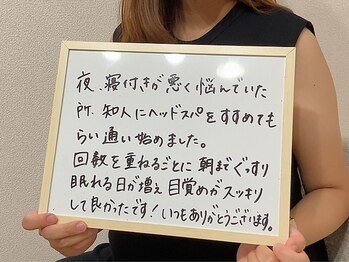 夜、寝付きが悪く悩んでいた
所、知人にヘッドスパをすすめても
らい通い始めました。
回数を重ねるごとに朝までぐっすり
眠れる日が増え目覚めがスッキリ
して良かったです！いつもありがとうございます。